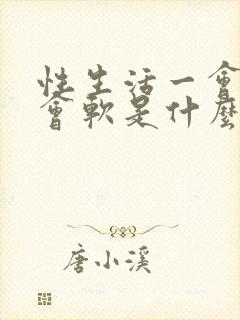 性生活一會
會軟是什麼
唐小溪